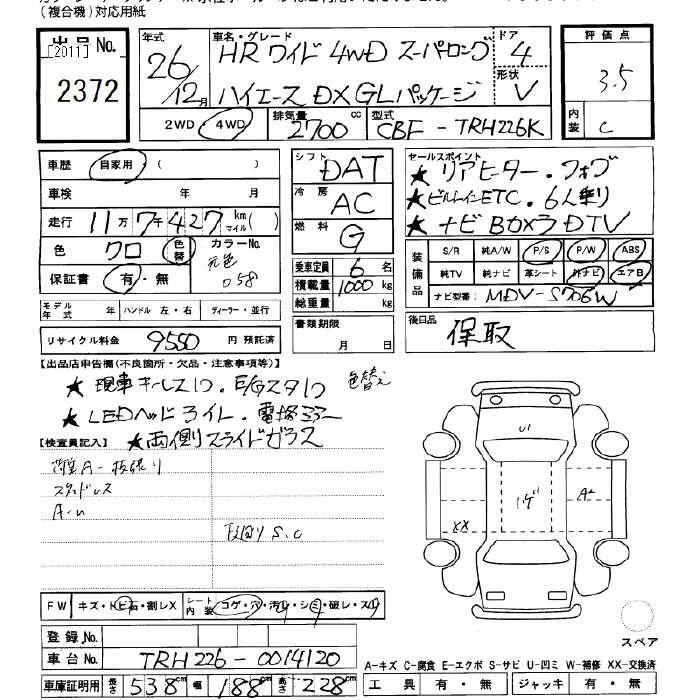 (複合機)対応用紙
出品No.
[2011]
2372
年式
26
12月
車名・グレード
HR ワイド 4WD スーパーロング
ハイエース DX GLパッケージ
ドア
4
形状
V
評価点
3.5
内装
C
2WD・4WD
排気量
2700 cc
型式
CBF-TRH226K
車歴 自家用 (
車検 年 月
走行 11万7千427 km マイル ( )
色 クロ 色替 カラーNo. 元色 058
保証書 有・無
シフト DAT
冷房 AC
燃料 G
乗車定員 6名
積載量 1000 kg
総重量 kg
セールスポイント
★リアヒーター・フォグ
★ビルトインETC・6人乗り
★ナビBカメラDTV
装備品
S/R 純A/W P/S P/W ABS
純TV 純ナビ 革シート 外ナビ エアB
ナビ型番: MDV-S706W
モデル年式 年 ハンドル 左・右 ディーラー・並行
リサイクル料金 9550 円 預託済
書類期限 月 日
後日品 保取
【出品店申告欄(不良箇所・欠品・注意事項等)】
★現車キーレス1コ・E/Gスタ1コ 色替え
★LEDヘッドライト・電格ミラー
★両側スライドガラス
【検査員記入】
荷室A-板張り
スタッドレス
A-U
下廻りS.C
U1
A2
XX
FW キズ・トビ石・割レX シート内装 コゲ・穴・汚レ・シミ・破レ・スレ
登録No.
車台No. TRH226-0014120
車庫証明用 長さ 538cm 幅 188cm 高さ 228cm
スペア
A-キズ C-腐食 E-エクボ S-サビ U-凹ミ W-補修 XX-交換済
工具 有・無 ジャッキ 有・無